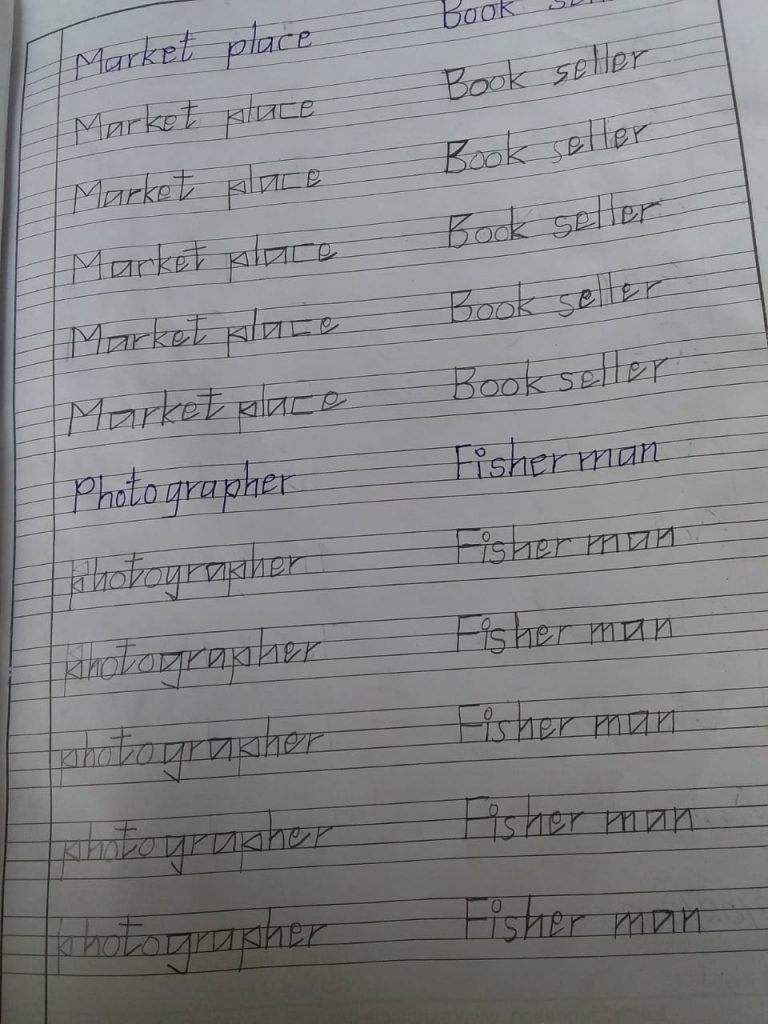 Market place Book
Market place Book seller
Market place Book seller
Market place Book seller
Market place Book seller
Market place Book seller
Photographer Fisher man
photographer Fisher man
photographer Fisher man
photographer Fisher man
photographer Fisher man
photographer Fisher man